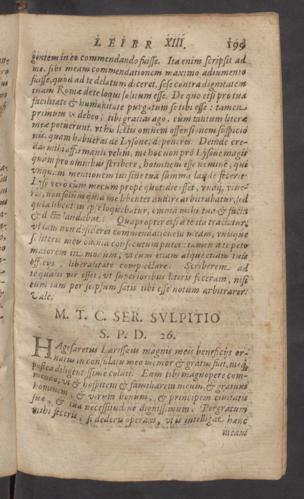 LEIBR XIII. 199
gentem in eo commendando fuisse. Ita enim scripsit ad
me, sibi meam commendationem maximo adiumento
fuisse, quod ad te delatum diceret, sese contra dignitatem
tuam Romæ de te loqui solitum esse. De quo etsi pro tua
facilitate & humanitate purgatum se tibi esse: tamen
primum ut debeo, tibi gratias ago, cum tantum literæ
meæ potuerunt, ut his lectis omnem offensionem suspicio
nis, quam habueras de Lysone, deponeres. Deinde cre-
das mihi affirmanti velim, me hoc non pro Lysone magis
quàm pro omnibus scribere, hominem esse neminem, qui
unquam mentionem tui sine tua summa laude fecerit.
Lyso vero cum mecum prope quotidie esset, unaq́; viue-
ret, non solum quia me libenter audire arbitrabatur, sed
quia libentius ipse loquebatur, omnia mihi tua & facta
& dicta laudabat. Quapropter etsi à te ita tractatur,
ut iam non desideret commendationem meam, unisque
se literis meis omnia consecutum putet: tamen à te peto
maiorem in modum, ut eum etiam atque etiam tuis
officijs liberalitate complectare. Scriberem ad
te qualis vir esset, ut superioribus literis feceram, nisi
eum iam per seipsum satis tibi esse notum arbitrarer.
Vale.
M. T. C. SER. SVLPITIO
S. P. D. 26.
HAgesaretus Larissæus magnis meis beneficijs or-
natus in consulatu meo memor & gratus fuit, meq́;
postea diligentissime coluit. Eum tibi magnopere com-
mendo, ut & hospitem & familiarem meum, & gratum
hominem, & virum bonum, & principem ciuitatis
suæ, & tua necessitudine dignissimum. Pergratum
mihi feceris, si dederis operam, ut is intelligat hanc
meam